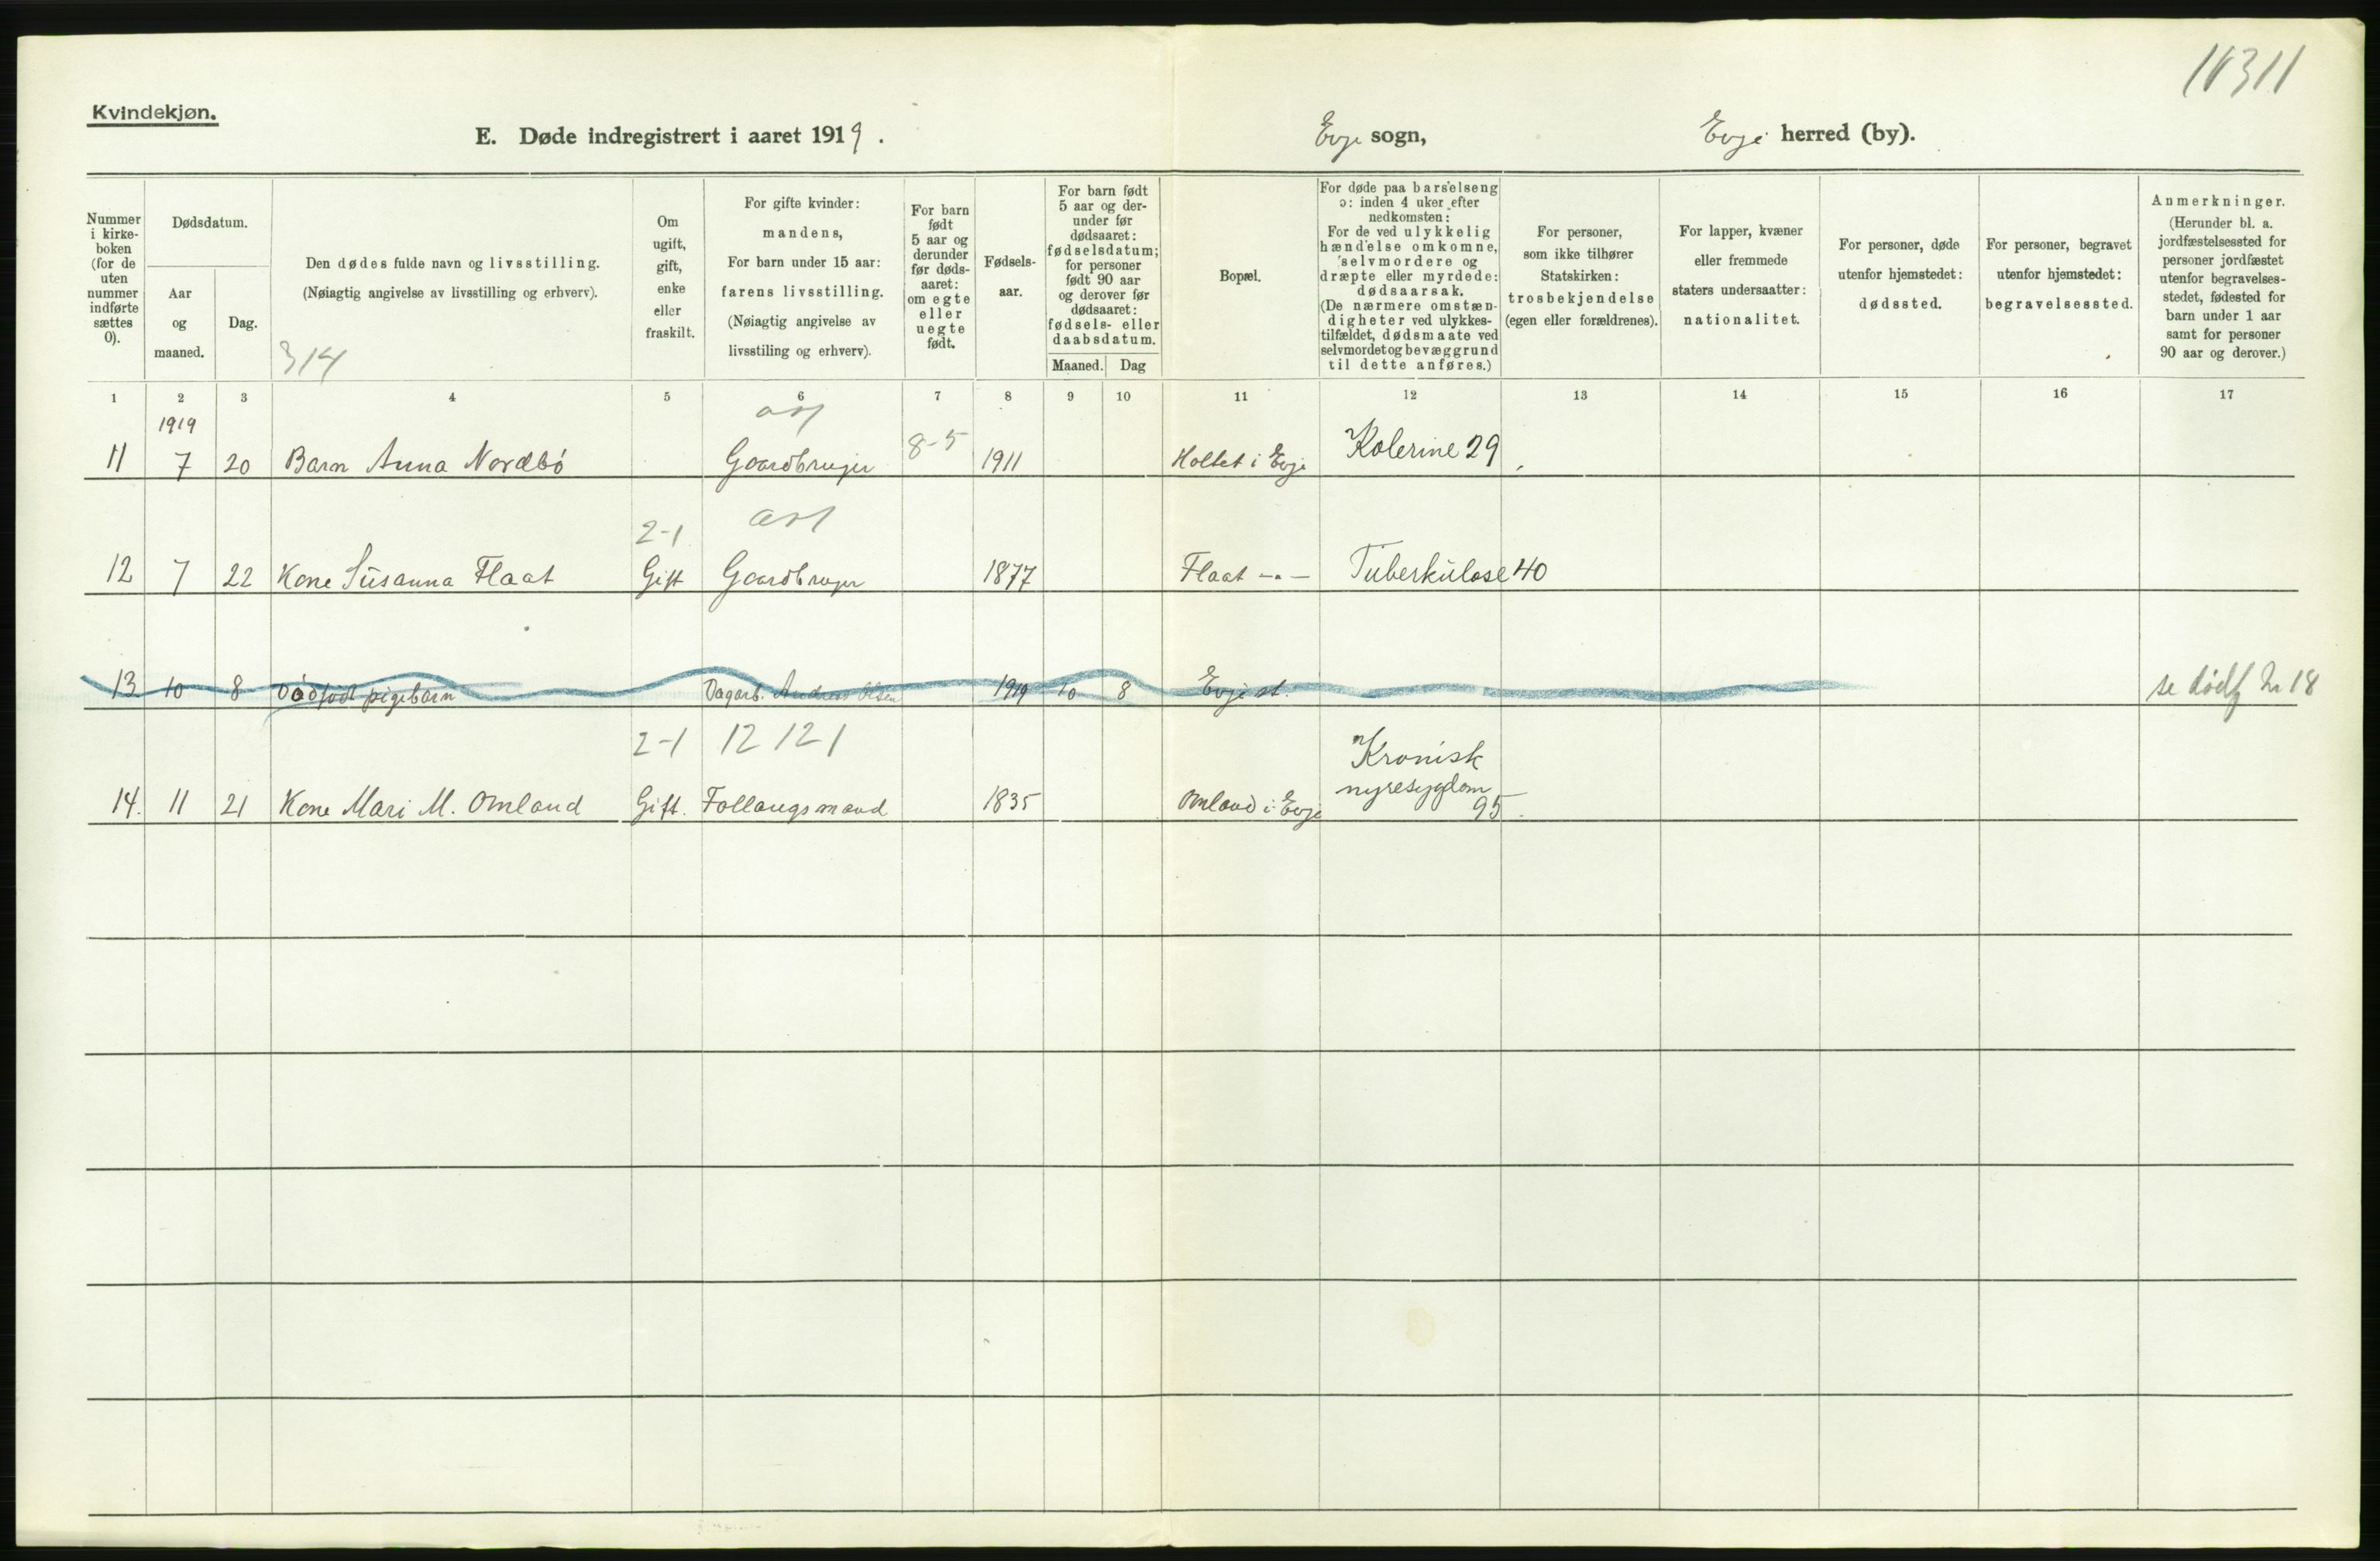 11311
Kvindekjøn.
E. Døde indregistrert i aaret 1919.
Evje sogn, Evje herred (by).
Nummer i kirke-boken (for de uten nummer indførte sættes 0).
Dødsdatum.
Aar og maaned.
Dag.
Den dødes fulde navn og livsstilling.
(Nøiagtig angivelse av livsstilling og erhverv).
314
Om ugift, gift, enke eller fraskilt.
For gifte kvinder: mandens,
For barn under 15 aar: farens livsstilling.
(Nøiagtig angivelse av livsstiling og erhverv).
For barn født 5 aar og derunder før døds-aaret: om egte eller uegte født.
Fødsels-aar.
For barn født 5 aar og der-under før dødsaaret: fødselsdatum; for personer født 90 aar og derover før dødsaaret: fødsels- eller daabsdatum.
Maaned. Dag
Bopæl.
For døde paa barselseng ɔ: inden 4 uker efter nedkomsten:
For de ved ulykkelig hændelse omkomne, selvmordere og dræpte eller myrdede: dødsaarsak.
(De nærmere omstæn-digheter ved ulykkes-tilfældet, dødsmaate ved selvmordet og bevæggrund til dette anføres.)
For personer, som ikke tilhører Statskirken: trosbekjendelse (egen eller forældrenes).
For lapper, kvæner eller fremmede staters undersaatter: nationalitet.
For personer, døde utenfor hjemstedet: dødssted.
For personer, begravet utenfor hjemstedet: begravelsessted.
Anmerkninger.
(Herunder bl. a. jordfæstelsessted for personer jordfæstet utenfor begravelses-stedet, fødested for barn under 1 aar samt for personer 90 aar og derover.)
1 2 3 4 5 6 7 8 9 10 11 12 13 14 15 16 17
1919
11 7 20 Barn Anna Nordbö Gaardbruger 8-5 1911 Holtet i Evje Kolerine 29
2-1
12 7 22 Kone Susanna Flaat Gift Gaardbruger 1877 Flaat -„- Tuberkulose 40
13 10 8 Dödfödt pigebarn Dagarb. Andreas Olsen 1919 10 8 Evje st. se dødf Nr 18
2-1 12 121
14. 11 21 Kone Mari M. Omland Gift. Follaugsmand 1835 Omland i Evje Kronisk nyresygdom 95